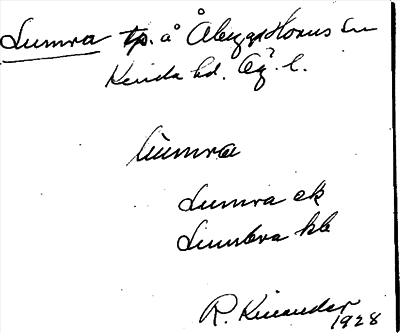 Lumra tp. å Åbyggs Horns sn
Kinda hd. Ög. l.
Lumra
Lumra ek
Lumbra kb
R. Kinander
1928